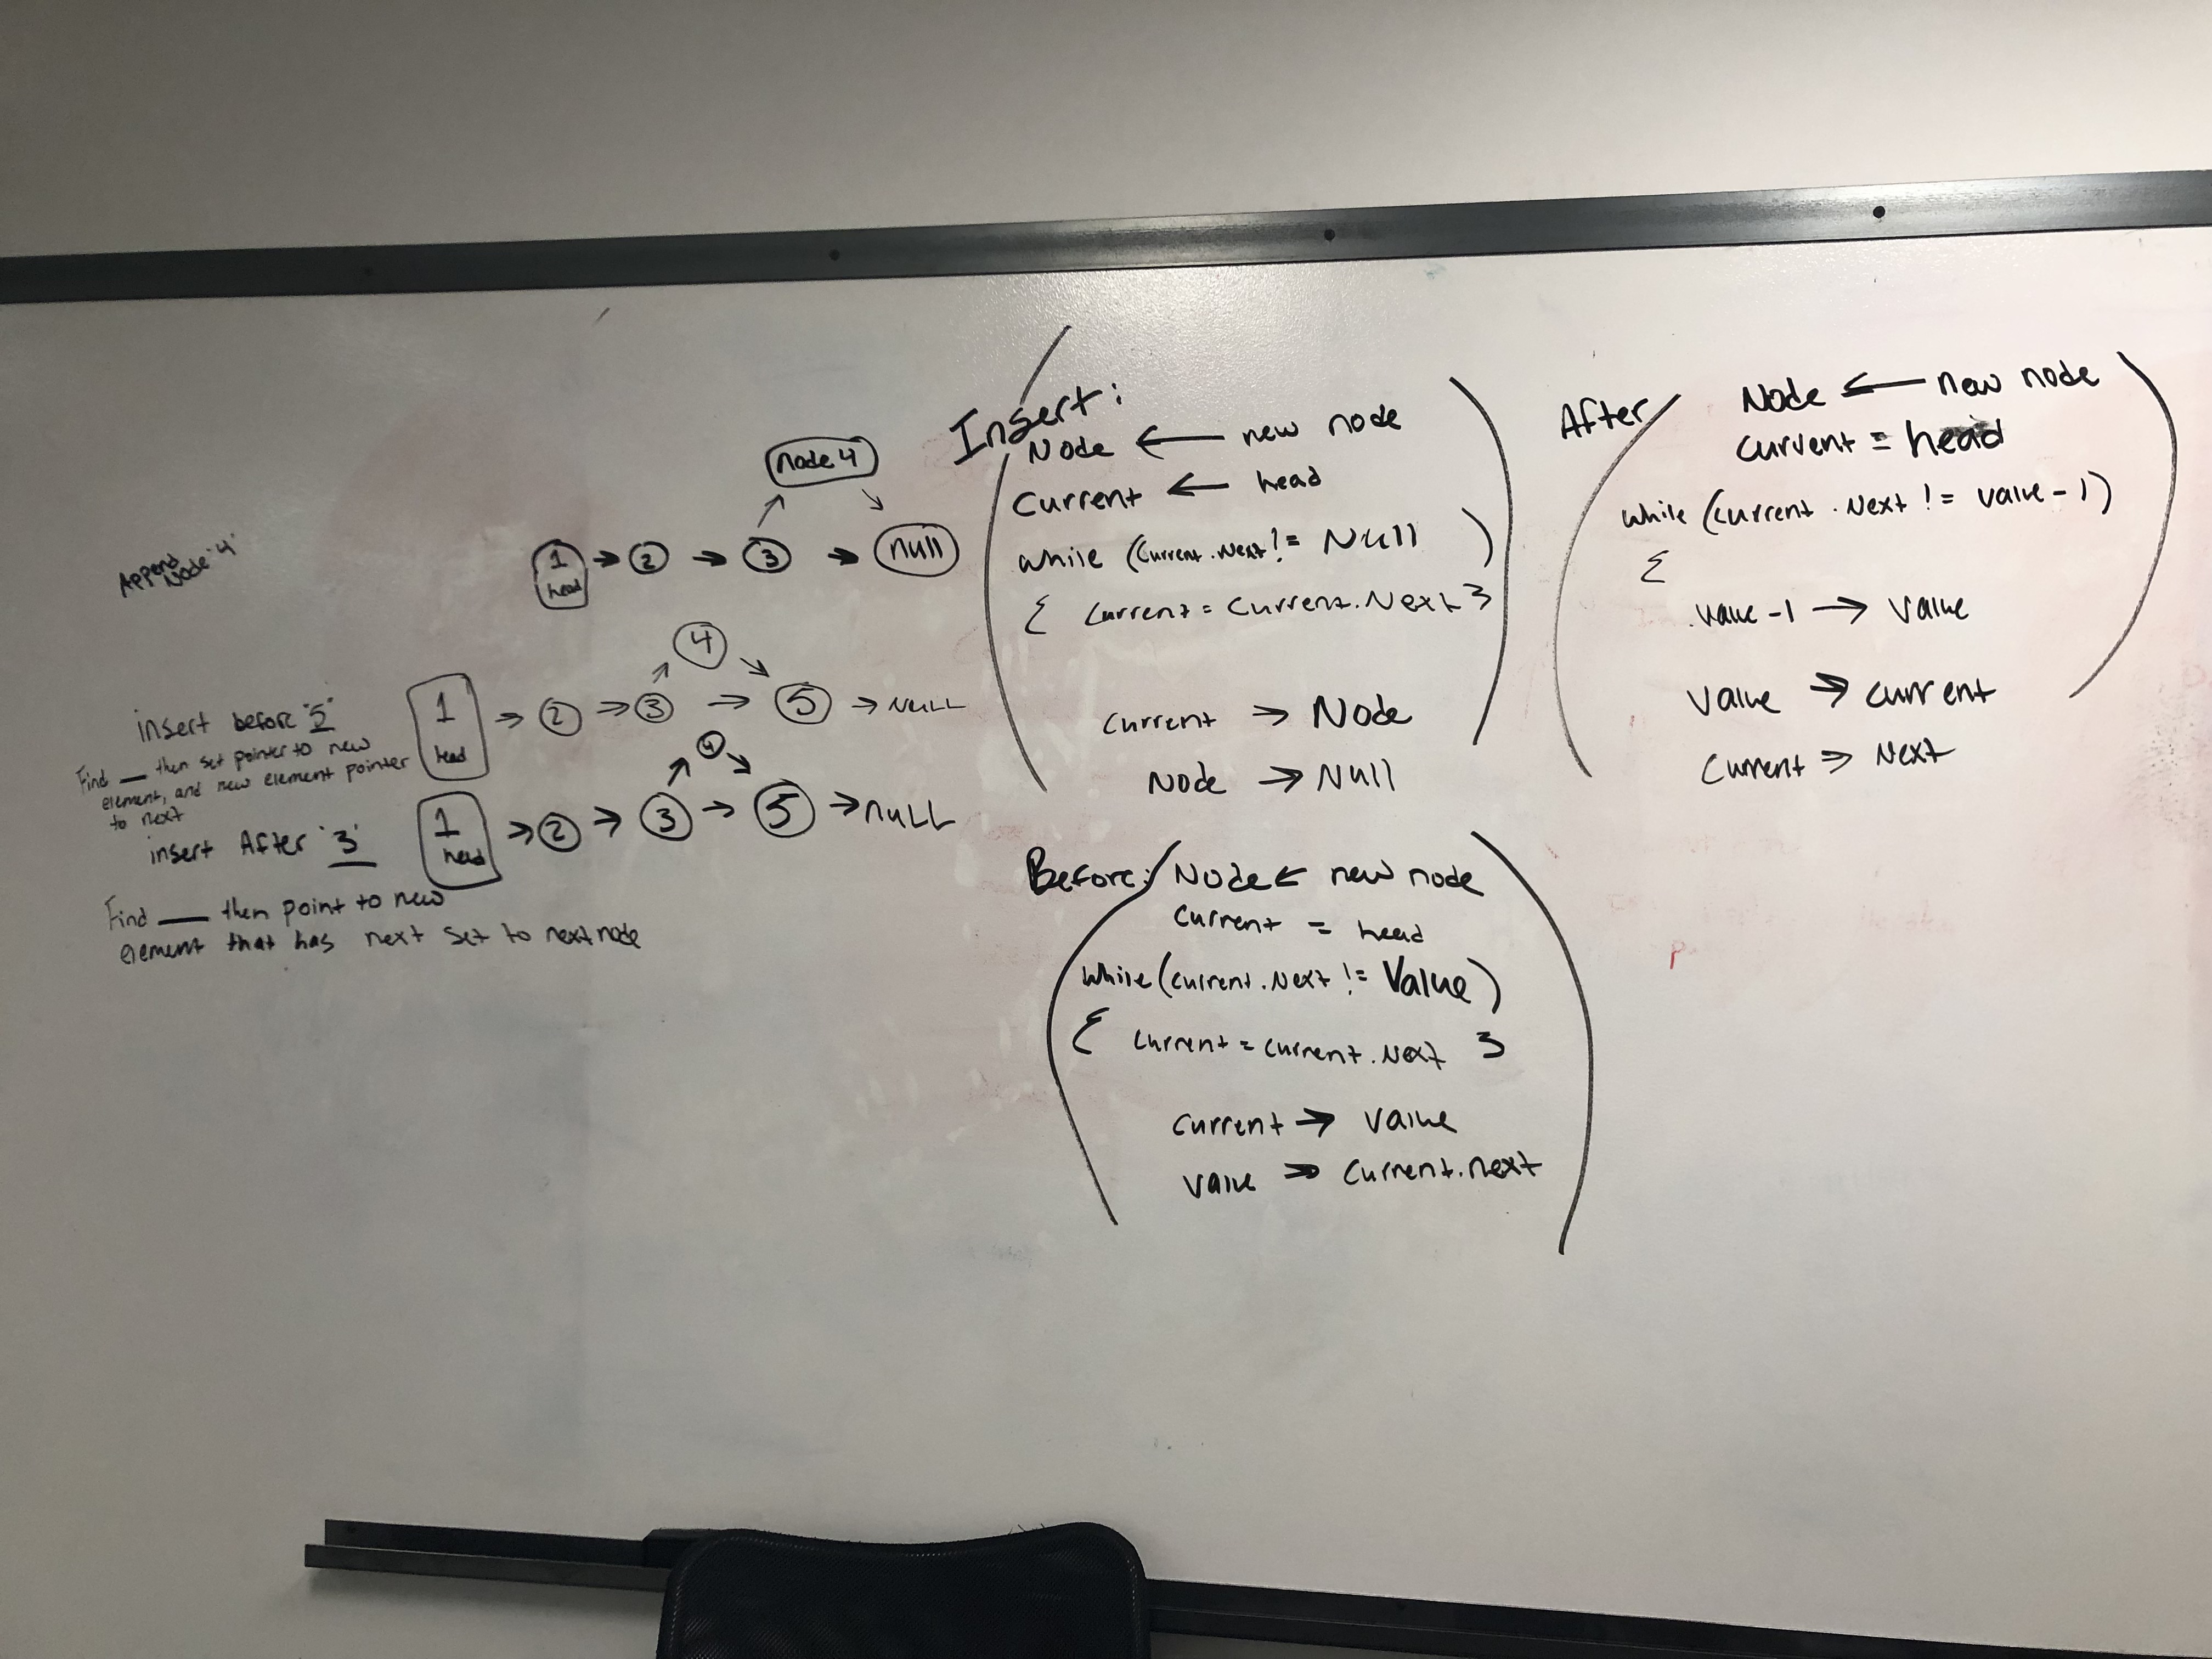 Append
Node "4"
node 4
1 → 2 → 3 → null
head
insert before "5"
Find __ then set pointer to new
element, and new element pointer
to next
4
1 → 2 → 3 → 5 → NULL
head
insert After '3'
4
1 → 2 → 3 → 5 → nULL
head
Find __ then point to new
element that has next set to next node
Insert:
Node ← new node
Current ← head
while (Current.Next != Null)
{ Current = Current.Next }
Current → Node
Node → Null
Before: Node ← new node
Current = head
while (Current.Next != Value)
{ Current = Current.Next }
Current → Value
Value → Current.next
After Node ← new node
Current = head
while (Current.Next != Value - 1)
{
Value -1 → Value
Value → Current
Current → Next